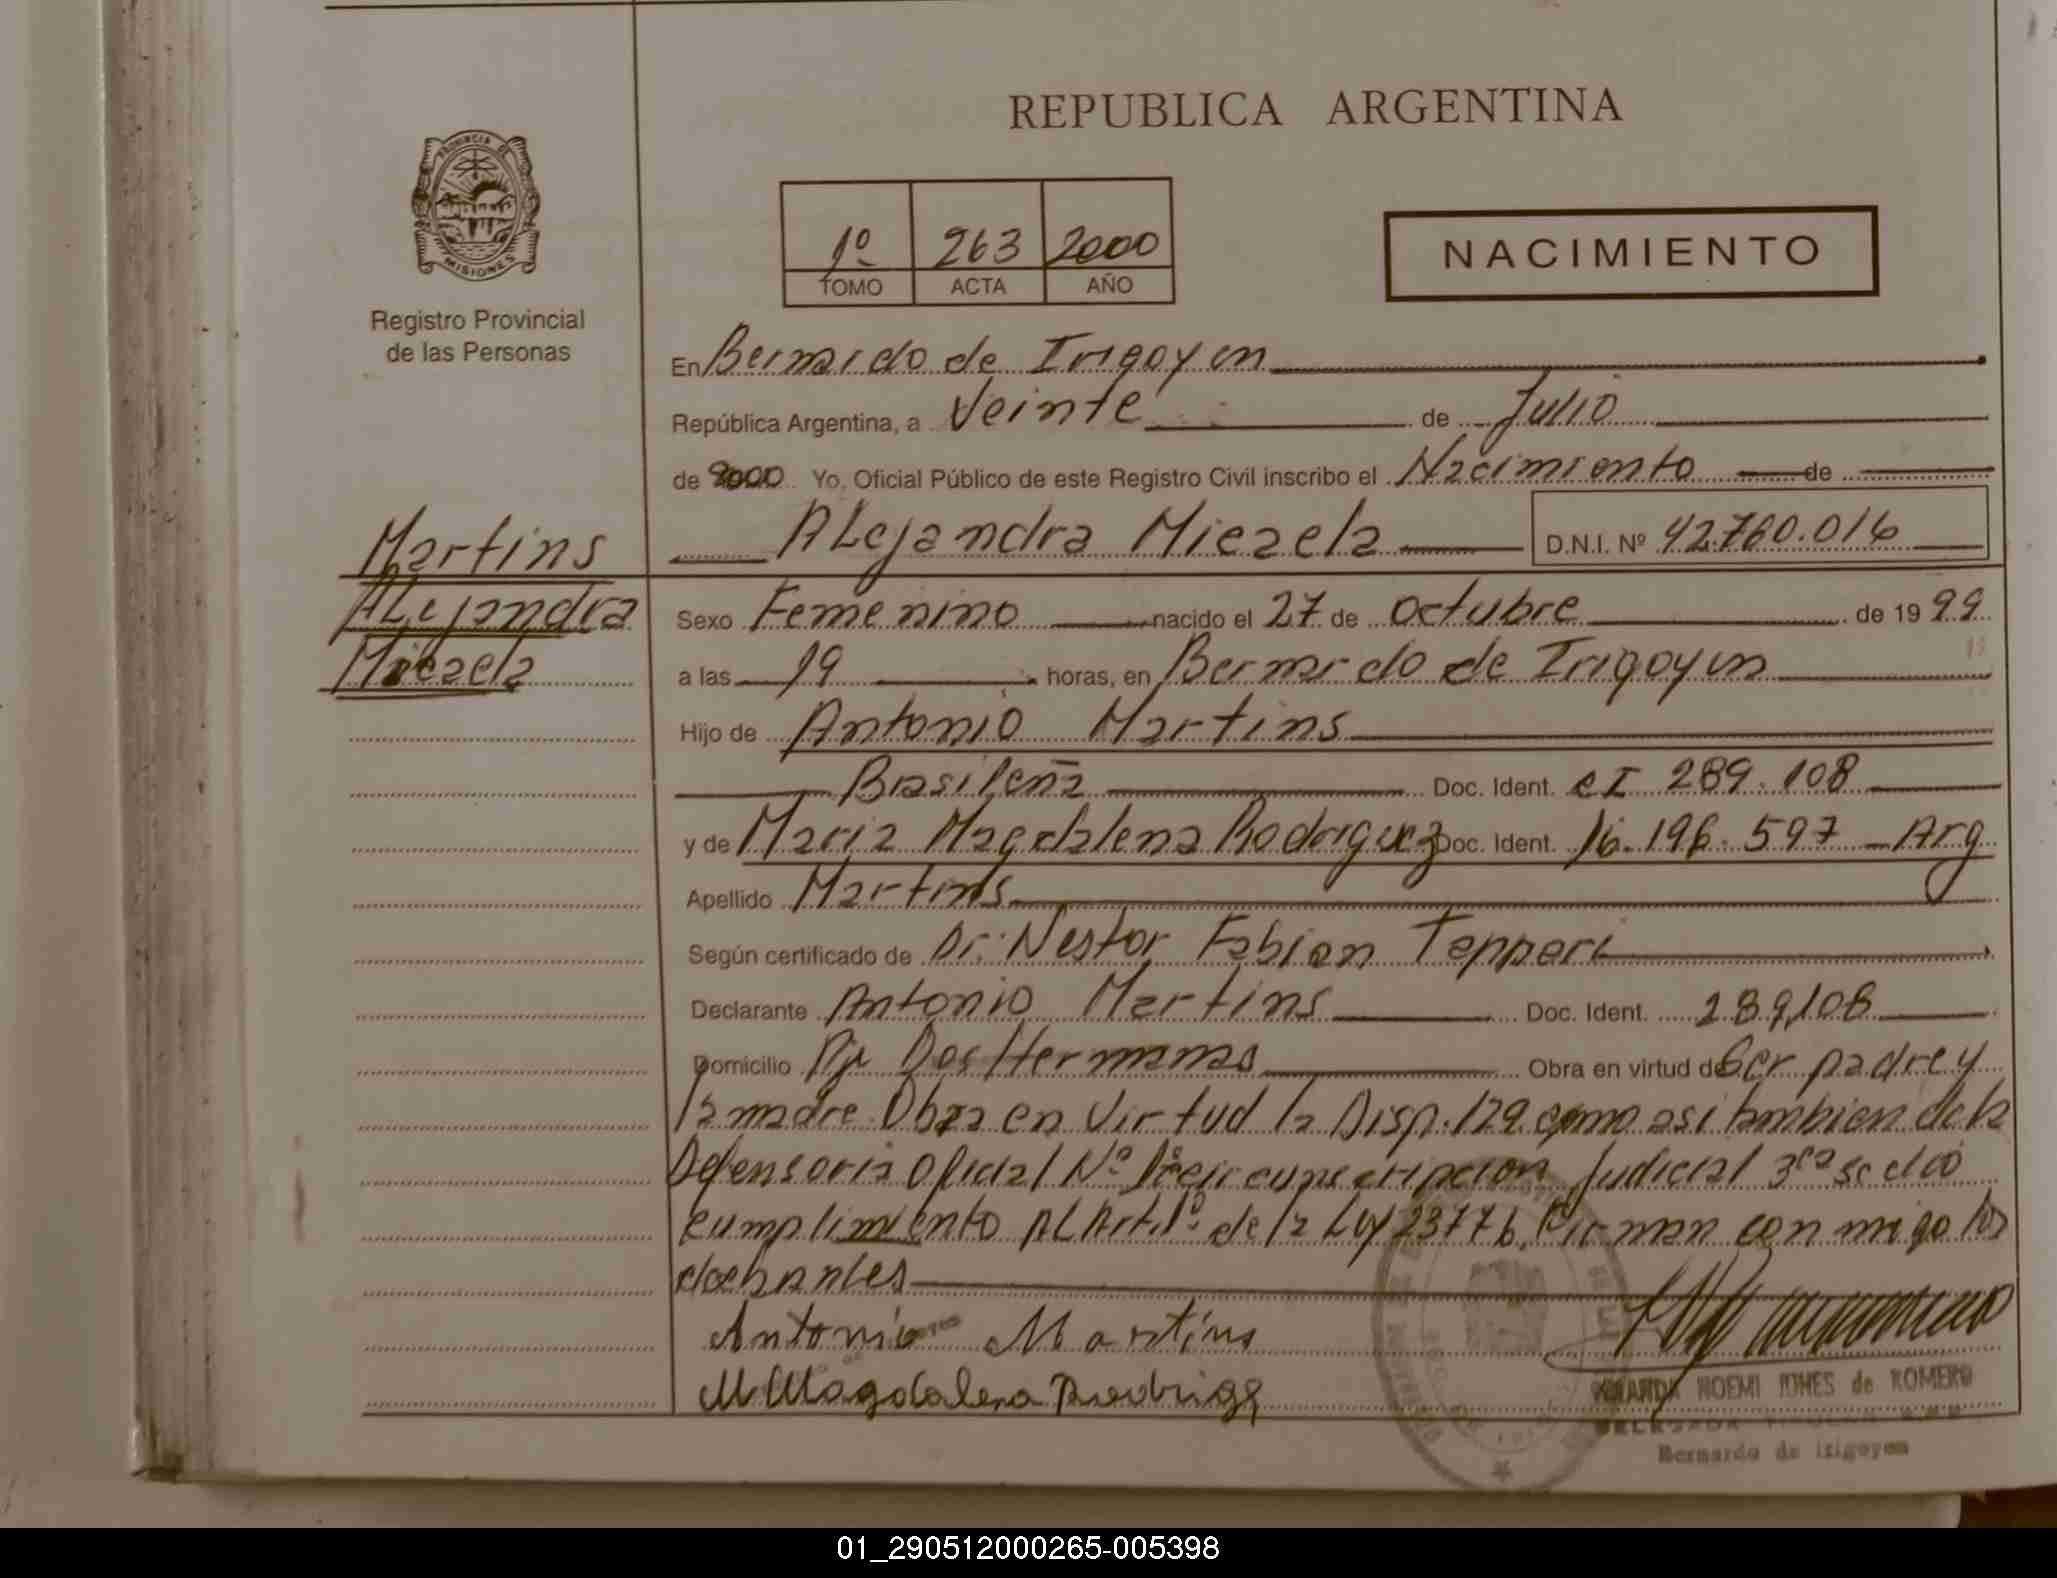 REPUBLICA ARGENTINA
PROVINCIA DE
MISIONES
Registro Provincial
de las Personas
1º 263 2000
TOMO ACTA AÑO
NACIMIENTO
En Bernardo de Irigoyen
República Argentina, a Veinte de Julio
de 2000 Yo, Oficial Público de este Registro Civil inscribo el Nacimiento de
Alejandra Micaela D.N.I. Nº 42.760.016
Martins
Alejandra
Micaela
Sexo Femenino nacido el 27 de Octubre de 1999
a las 19 horas, en Bernardo de Irigoyen
Hijo de Antonio Martins
Brasileña Doc. Ident. CI 289.108
y de Maria Magdalena Rodriguez Doc. Ident. 16.196.597 Arg
Apellido Martins
Según certificado de Dr: Nestor Fabian Tapperi
Declarante Antonio Martins Doc. Ident. 289,108
Domicilio Pje Dos Hermanas Obra en virtud de Ser padre y
la madre. Obra en Virtud la Disp. 129 como asi tambien de la
Defensoria Oficial Nº 1 circunscripcion Judicial 3ra se dió
cumplimiento AL Art. 1º de la Ley 23776. Firman con migo los
Antonio Martins
M Magdalena Rodrigz
NOEMI JONES de ROMERO
Bernardo de Irigoyen
01_290512000265-005398